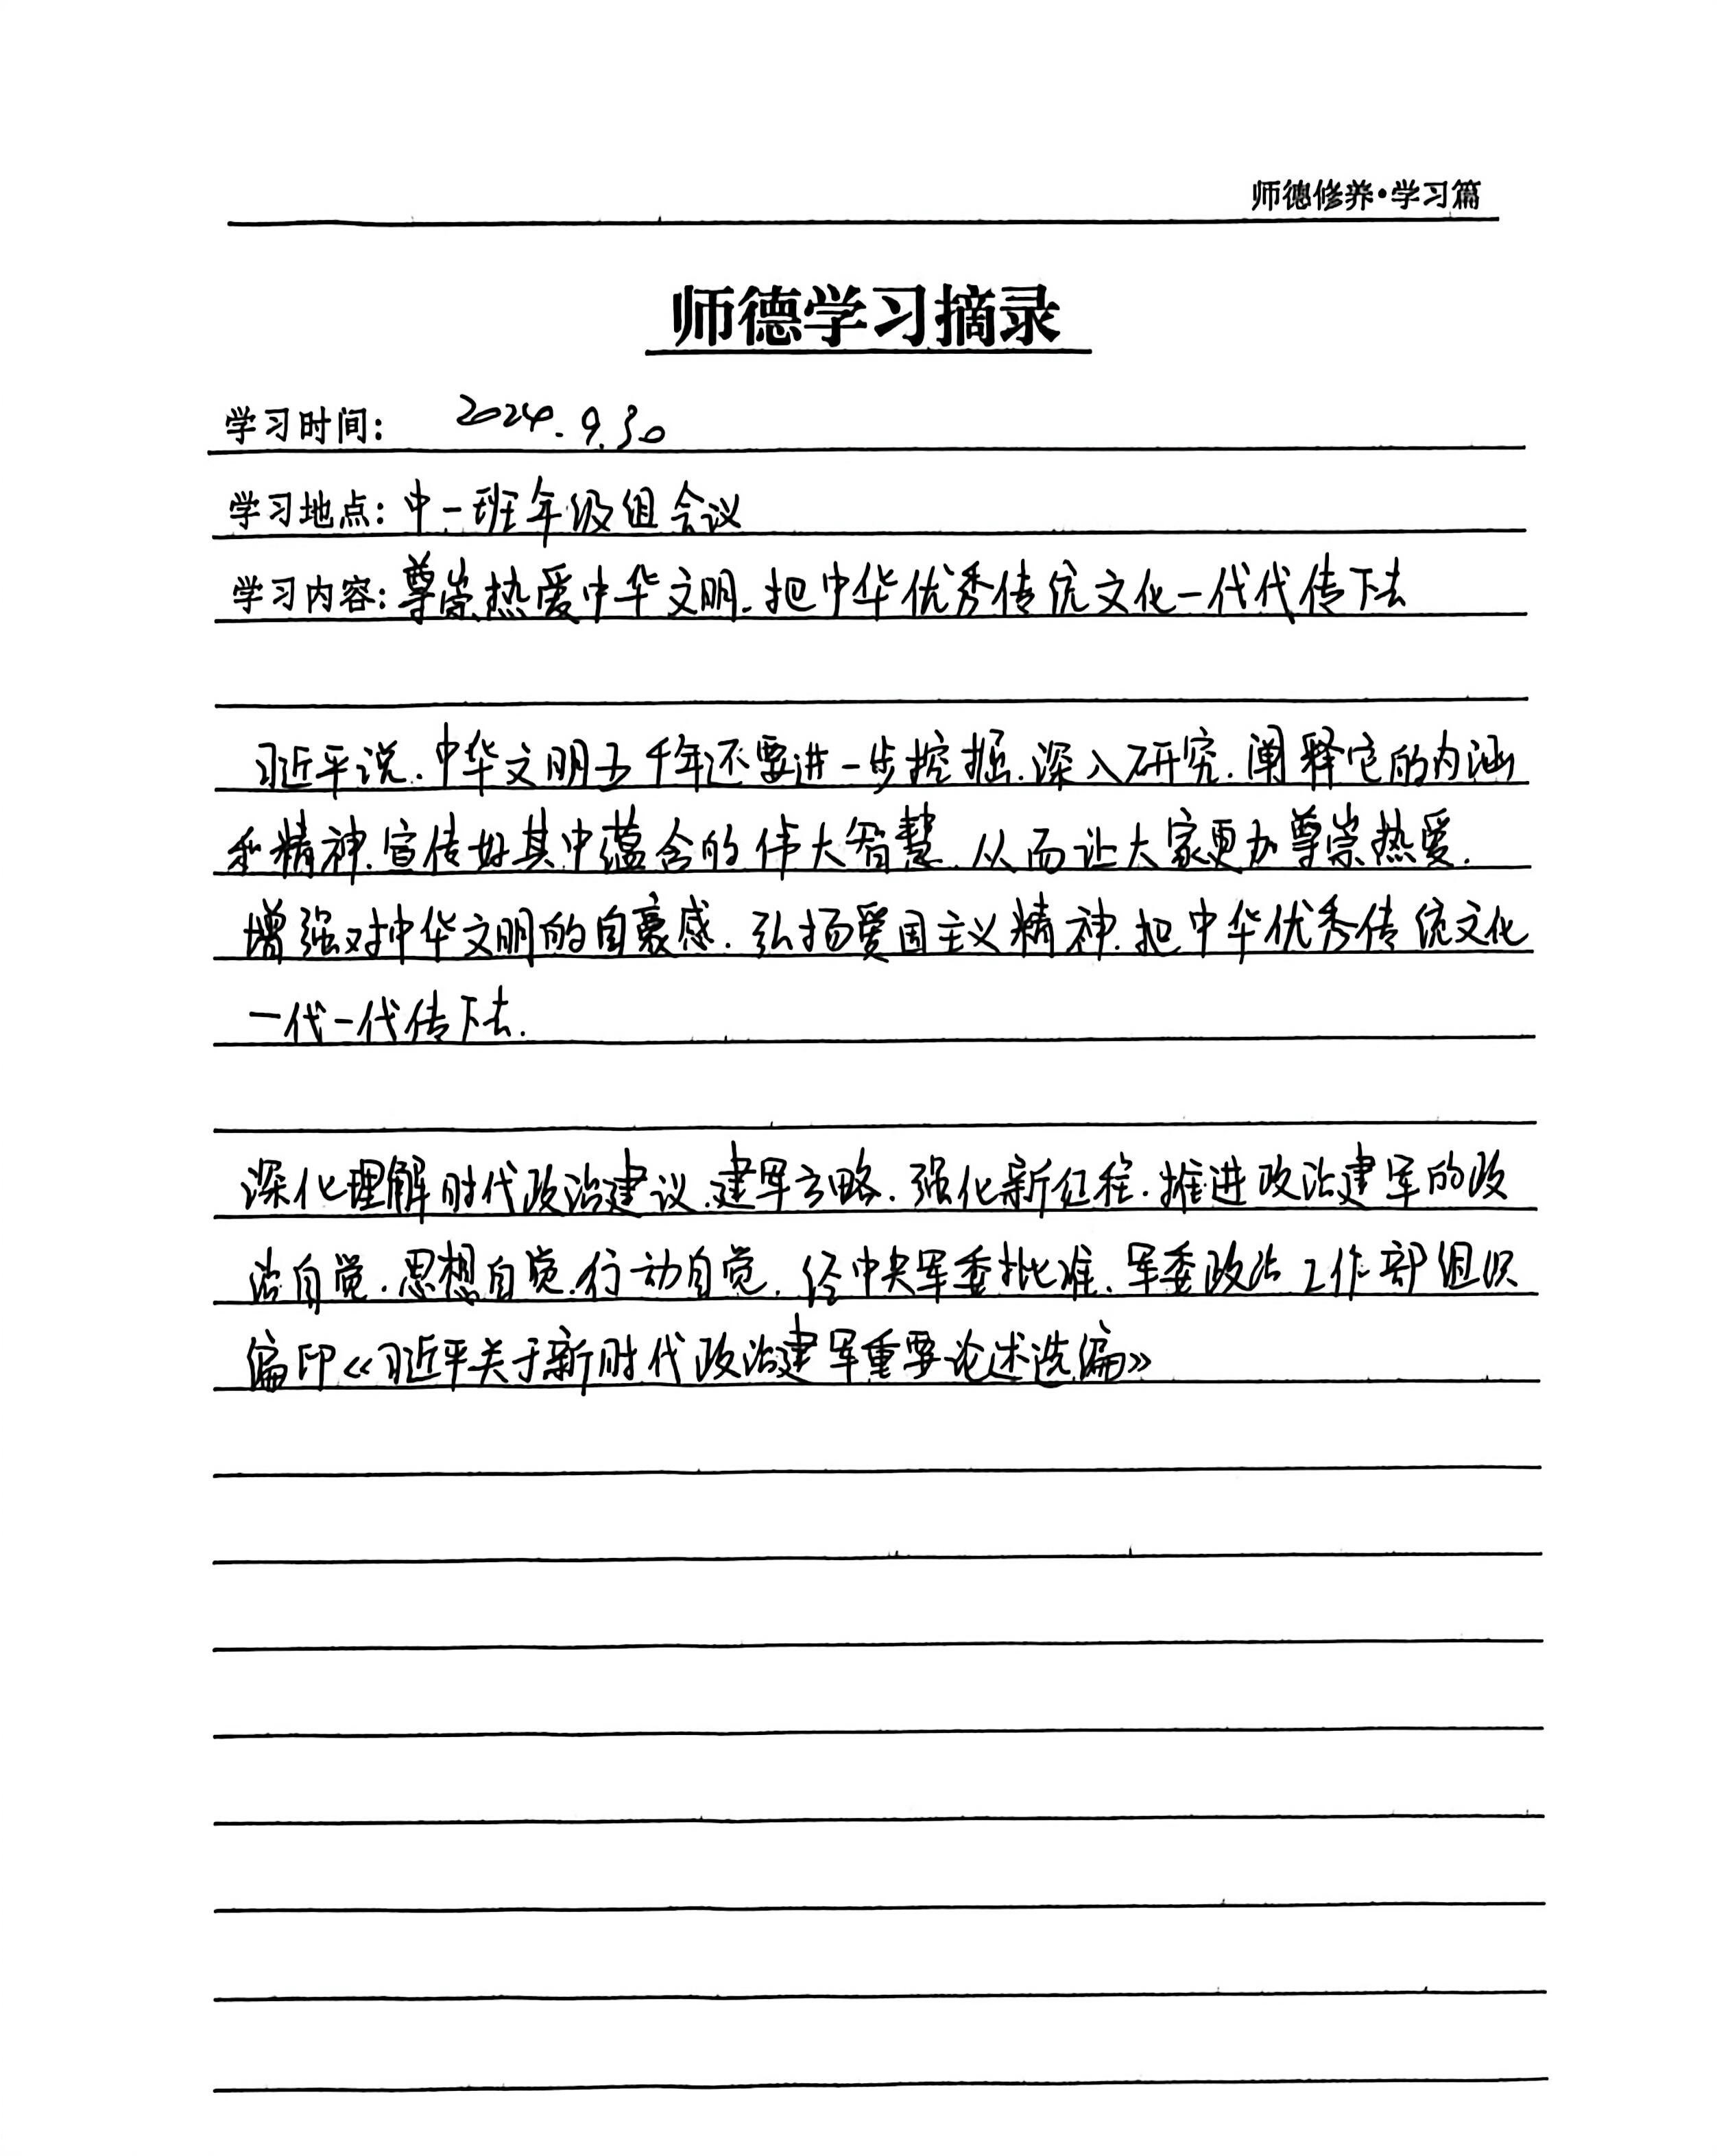 师德修养·学习篇
师德学习摘录
学习时间: 2024.9.30
学习地点:中一班年级组会议
学习内容:尊崇热爱中华文明.把中华优秀传统文化一代代传下去
习近平说.中华文明五千年还要进一步挖掘.深入研究.阐释它的内涵
和精神.宣传好其中蕴含的伟大智慧.从而让大家更加尊崇热爱.
增强对中华文明的自豪感.弘扬爱国主义精神.把中华优秀传统文化
一代一代传下去.
深化理解时代政治建议.建军方略.强化新征程.推进政治建军的政
治自觉.思想自觉.行动自觉.经中央军委批准.军委政治工作部组织
编印《习近平关于新时代政治建军重要论述选编》